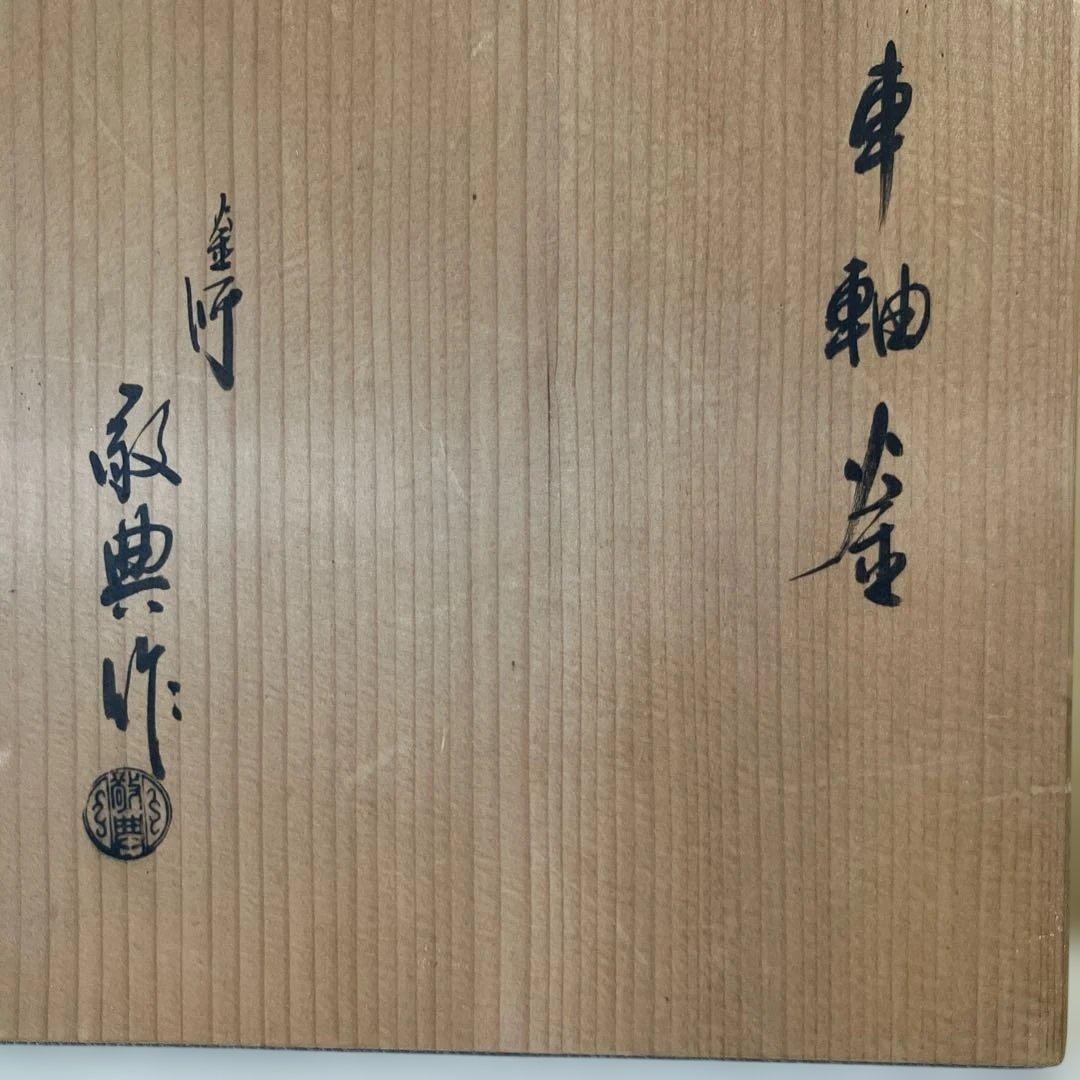 車軸釜
釜師
敬典作
敬典